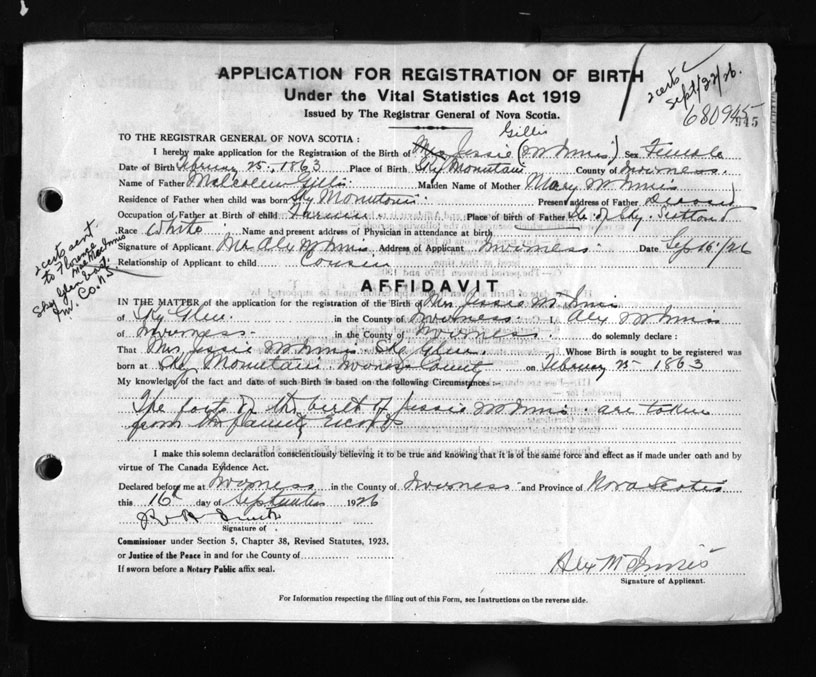 APPLICATION FOR REGISTRATION OF BIRTH
Under the Vital Statistics Act 1919
Issued by The Registrar General of Nova Scotia.
2 certs
Sept/22/26.
680945
945
TO THE REGISTRAR GENERAL OF NOVA SCOTIA:
Gillis
I hereby make application for the Registration of the Birth of Mrs Jessie (McInnis) Sex Female
Date of Birth February 25, 1863 Place of Birth Sky Mountain County of Inverness.
Name of Father Malcolm Gillis Maiden Name of Mother Mary McInnis
Residence of Father when child was born Sky Mountain Present address of Father Deceased
Occupation of Father at Birth of child Farmer Place of birth of Father Isle of Sky. Scotland
Race White Name and present address of Physician in attendance at birth
Signature of Applicant Mr Alex McInnis Address of Applicant Inverness Date Sep 16/26
Relationship of Applicant to child Cousin
2 certs sent
to Florence
Mae MacInnis
Sky Glen East
Inv. Co. N.S
AFFIDAVIT
IN THE MATTER of the application for the registration of the Birth of Mrs Jessie McInnis
of Sky Glen in the County of Inverness I, Alex McInnis
of Inverness in the County of Inverness do solemnly declare:
That Mrs Jessie McInnis Sky Glen. Whose Birth is sought to be registered was
born at Sky Mountain Inverness County on February 25 1863
My knowledge of the fact and date of such Birth is based on the following Circumstances:—
The facts of the birth of Jessie McInnis are taken
from the family records
I make this solemn declaration conscientiously believing it to be true and knowing that it is of the same force and effect as if made under oath and by
virtue of The Canada Evidence Act.
Declared before me at Inverness in the County of Inverness and Province of Nova Scotia
this 16th day of September 1926
Signature of
Commissioner under Section 5, Chapter 38, Revised Statutes, 1923,
or Justice of the Peace in and for the County of
If sworn before a Notary Public affix seal.
Alex McInnis
Signature of Applicant.
For Information respecting the filling out of this Form, see Instructions on the reverse side.